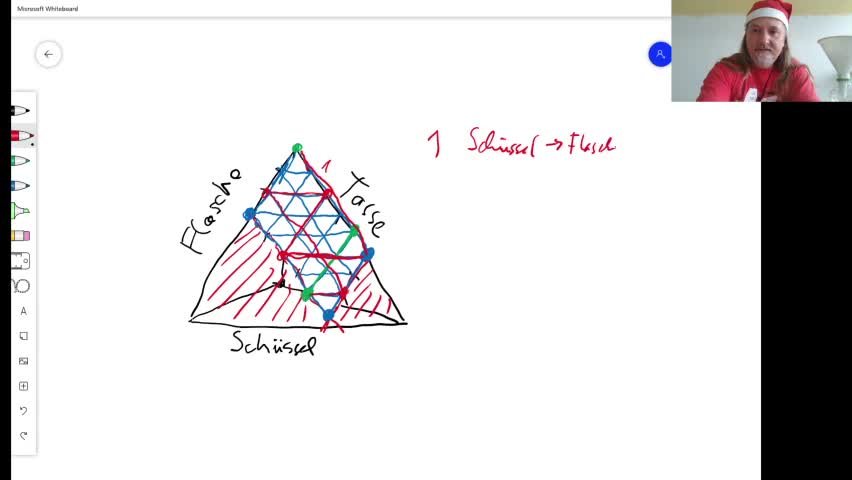 Microsoft Whiteboard
1 Schüssel → Flasch
1
Flasche
Tasse
Schüssel
A